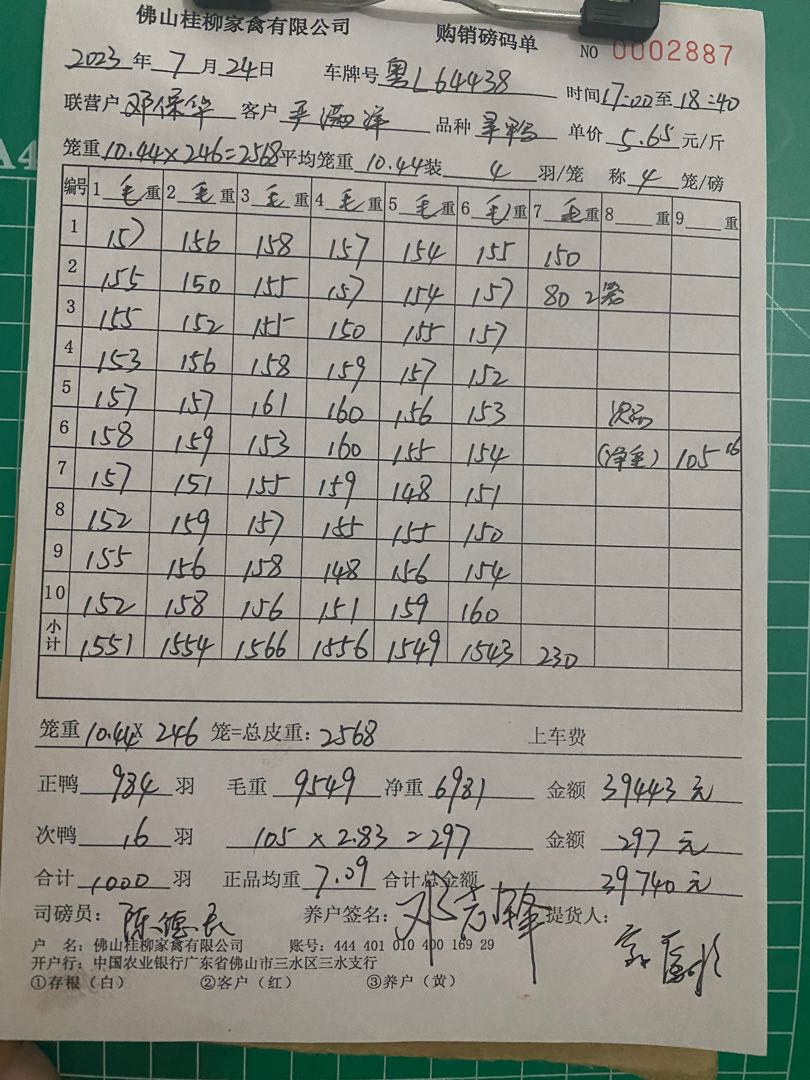 佛山桂柳家禽有限公司 购销磅码单 NO 0002887
2023年7月24日 车牌号 粤L64438 时间17:00至18:40
联营户 邓保华 客户 品种 单价 5.65 元/斤
笼重 10.44×246=2568 平均笼重 10.44 装 4 羽/笼 称 4 笼/磅
编号 1 毛 重 2 毛 重 3 毛 重 4 毛 重 5 毛 重 6 毛 重 7 毛 重 8 重 9 重
1 157 156 158 157 154 155 150
2 155 150 155 157 154 157 80 2笼
3 155 152 155 150 155 157
4 153 156 158 159 157 152
5 157 157 161 160 156 153 次品
6 158 159 153 160 155 154 (净重) 105 16
7 157 151 155 159 148 151
8 152 159 157 155 155 150
9 155 156 158 148 156 154
10 152 158 156 151 159 160
小计 1551 1554 1566 1556 1549 1543 230
笼重 10.44× 246 笼=总皮重: 2568 上车费
正鸭 984 羽 毛重 9549 净重 6981 金额 39443 元
次鸭 16 羽 105 × 2.83 = 297 金额 297 元
合计 1000 羽 正品均重 7.09 合计总金额 39740 元
司磅员: 陈德长 养户签名: 邓志锋 提货人:
户 名: 佛山桂柳家禽有限公司 账号: 444 401 010 400 169 29
开户行: 中国农业银行广东省佛山市三水区三水支行
①存根(白) ②客户(红) ③养户(黄)